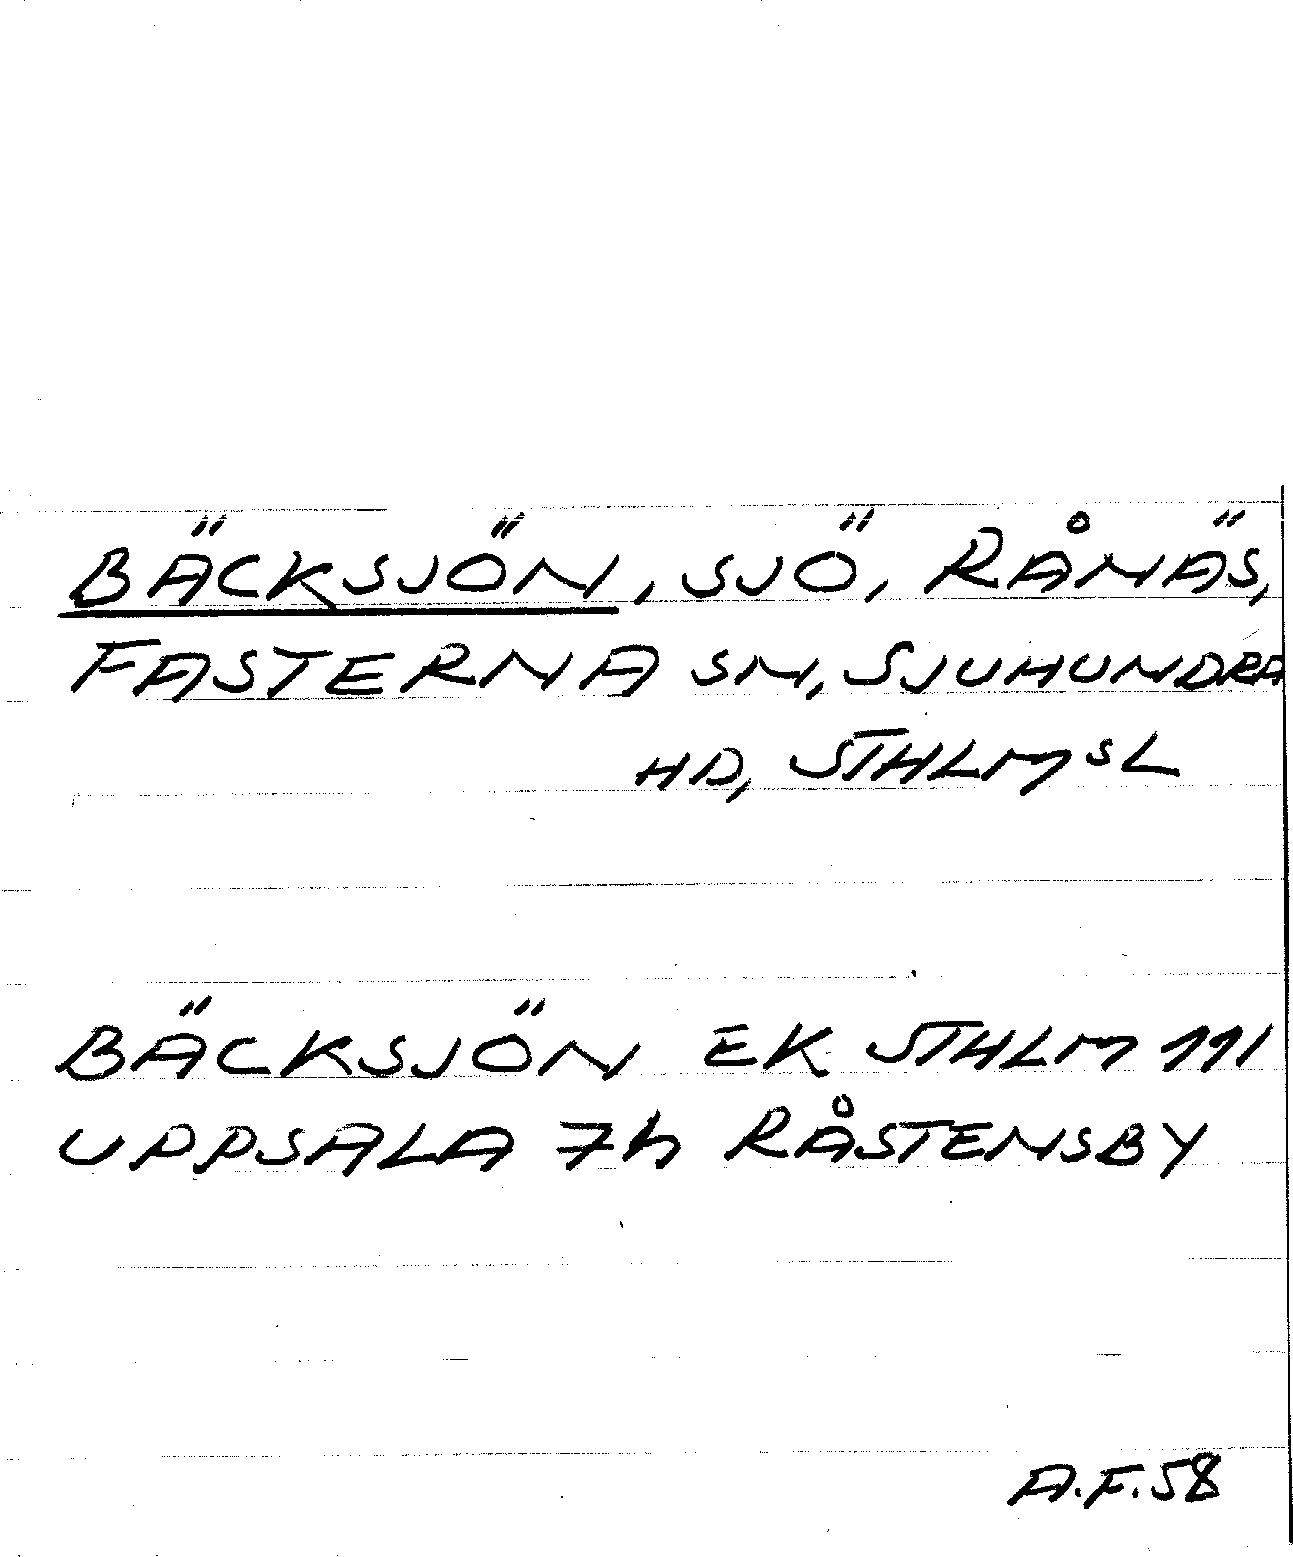 BÄCKSJÖN, SJÖ, RÅNÄS,
FASTERNA SN, SJUHUNDRA
HD, STHLMSL
BÄCKSJÖN EK STHLM 111
UPPSALA 7h RÅSTENSBY
A.F.58